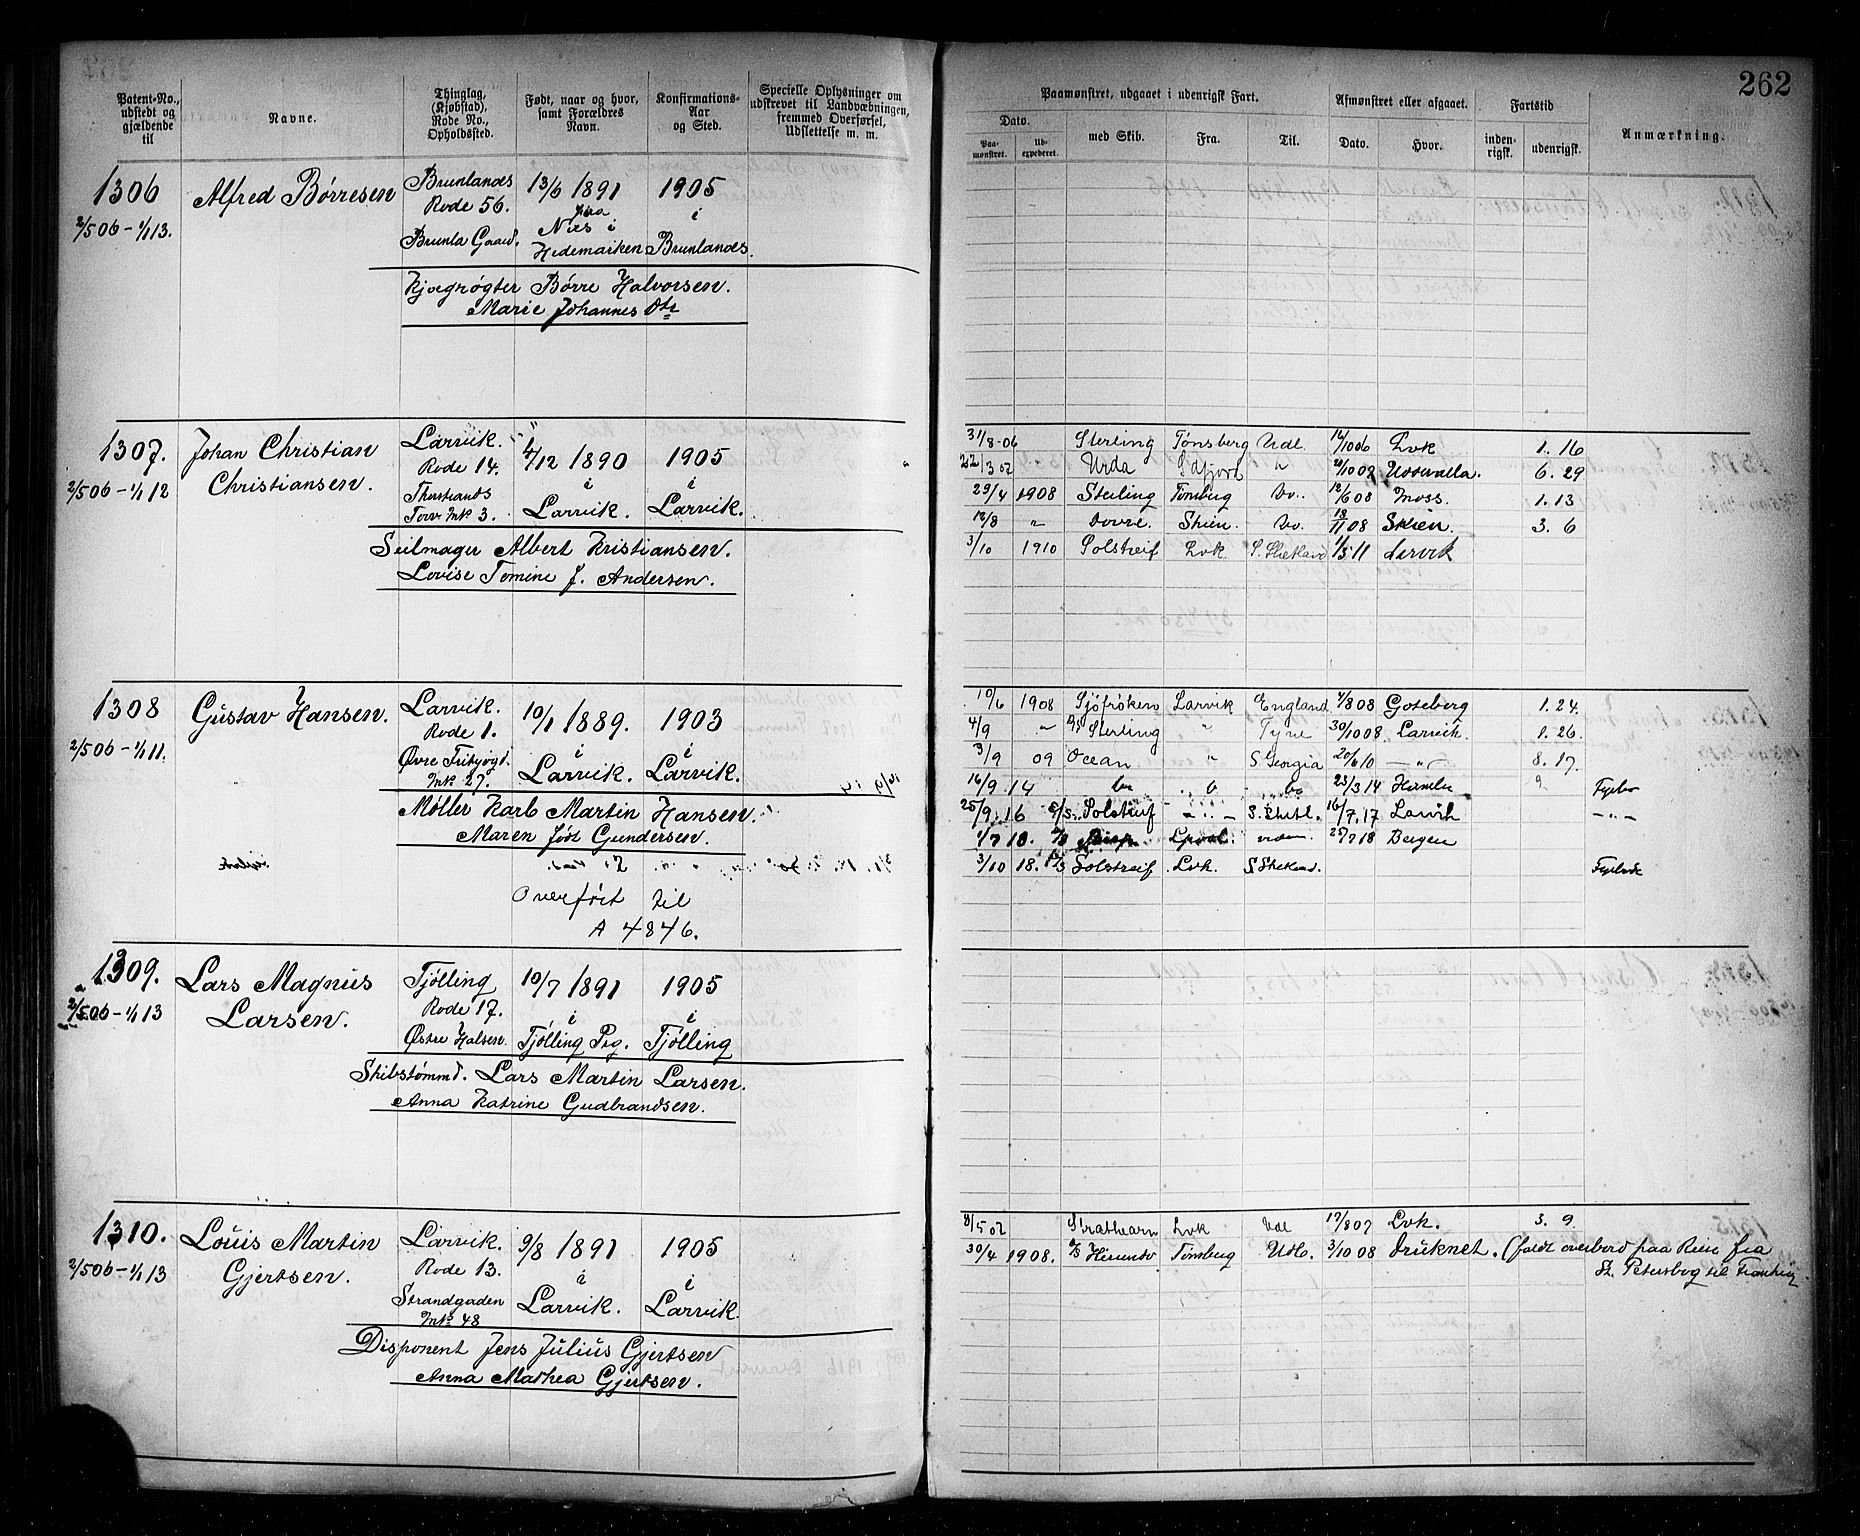 262
Patent-No., udstedt og gjældende til
Navne.
Thinglag, (Kjøbstad), Rode No., Opholdssted.
Født, naar og hvor, samt Forældres Navn.
Konfirmations-Aar og Sted.
Specielle Oplysninger om udskrevet til Landværbningen, fremmed Overførsel, Udslettelse m. m.
Paamønstret, udgaaet i udenrigsk Fart.
Dato.
Paa-mønstret.
Ud-expederet.
med Skib.
Fra.
Til.
Afmønstret eller afgaaet.
Dato.
Hvor.
Fartstid
inden-rigsk.
udenrigsk.
Anmærkning.
1306
2/5 06 - 1/1 13.
Alfred Børresen
Brunlanes
Rode 56.
Brunla Gaard.
13/6 1891
Næs i
Hedemarken
1905
i
Brunlanes.
Kjøgrøgter Børre Halvorsen.
Marie Johannes Dtr
1307.
2/5 06 - 1/1 12
Johan Christian
Christiansen.
Larvik.
Rode 14.
Torv Mk 3.
4/12 1890
i
Larvik.
1905
i
Larvik.
Seilmager Albert Kristiansen.
Lovise Tomine J. Andersen.
31/8-06 Sterling Tønsberg Udl. 1006 Lvk 1. 16
Urda 6. 29
29/4 1908 Sterling Tønsberg Do. 12/6 08 Moss. 1. 13
12/8 " Dovre. Skien. Do 18/11 08 Skien. 3. 6
3/10 1910 Solstreif Lvk. S. Shetland 1/5 11 Larvik
1308
2/5 06 - 1/1 11.
Gustav Hansen.
Larvik.
Rode 1.
Øvre Fritzøgd.
Mk 27.
10/1 1889.
i
Larvik.
1903
i
Larvik.
Møller Karl Martin Hansen.
Maren Jød Gundersen.
Overført til
A 4846.
10/6 1908 Sjöfröken Larvik England 08 Goteborg 1. 24.
4/9 " Sterling " Tyne 30/10 08. Larvik. 1. 26.
3/9 09 Ocean " S Georgia 20/6 10 — " — 8. 17.
16/9 14 do 23/3 14
25/9. 16 Solstreif S. Shetl. 16/7. 17 Larvik — " —
1/7 18. 25/7 18 Bergen
3/10 18. Solstreif Lvk. S Shetland.
1309.
2/5 06 - 1/1 13
Lars Magnus
Larsen.
Tjølling
Rode 17.
Østre Halsen.
10/7 1891
i
Tjølling Prg.
1905
i
Tjølling
Skibstømmd. Lars Martin Larsen.
Anna Katrine Gudbrandsen.
1310.
2/5 06 - 1/1 13
Louis Martin
Gjertsen.
Larvik.
Rode 13.
Strandgaden
Mk 48
9/8 1891
i
Larvik.
1905
i
Larvik.
Disponent Jens Julius Gjertsen
Anna Mathea Gjertsen.
Strathearn Lvk Udl 17/8 07 Lvk. 3. 9.
30/4 1908. Hirundo Tønsberg Udl. 3/10 08 druknet. (faldt overbord paa Reise fra
St. Petersbog til